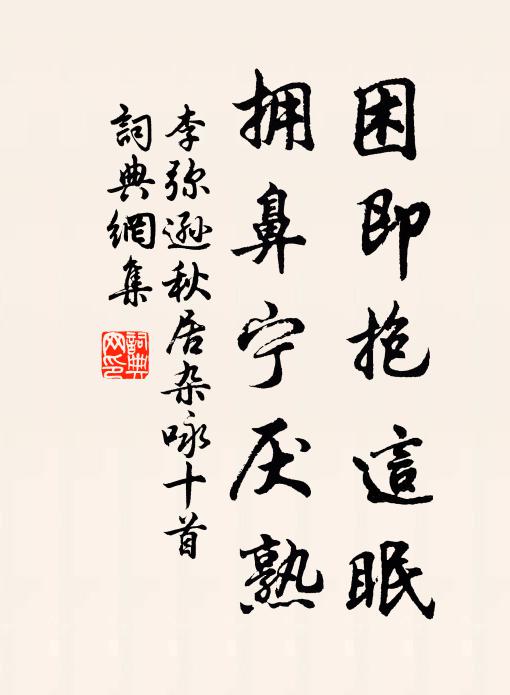 困即抱這眠
拥鼻宁厌熟
李弥逊秋居杂咏十首
詞典網集
詞典網印